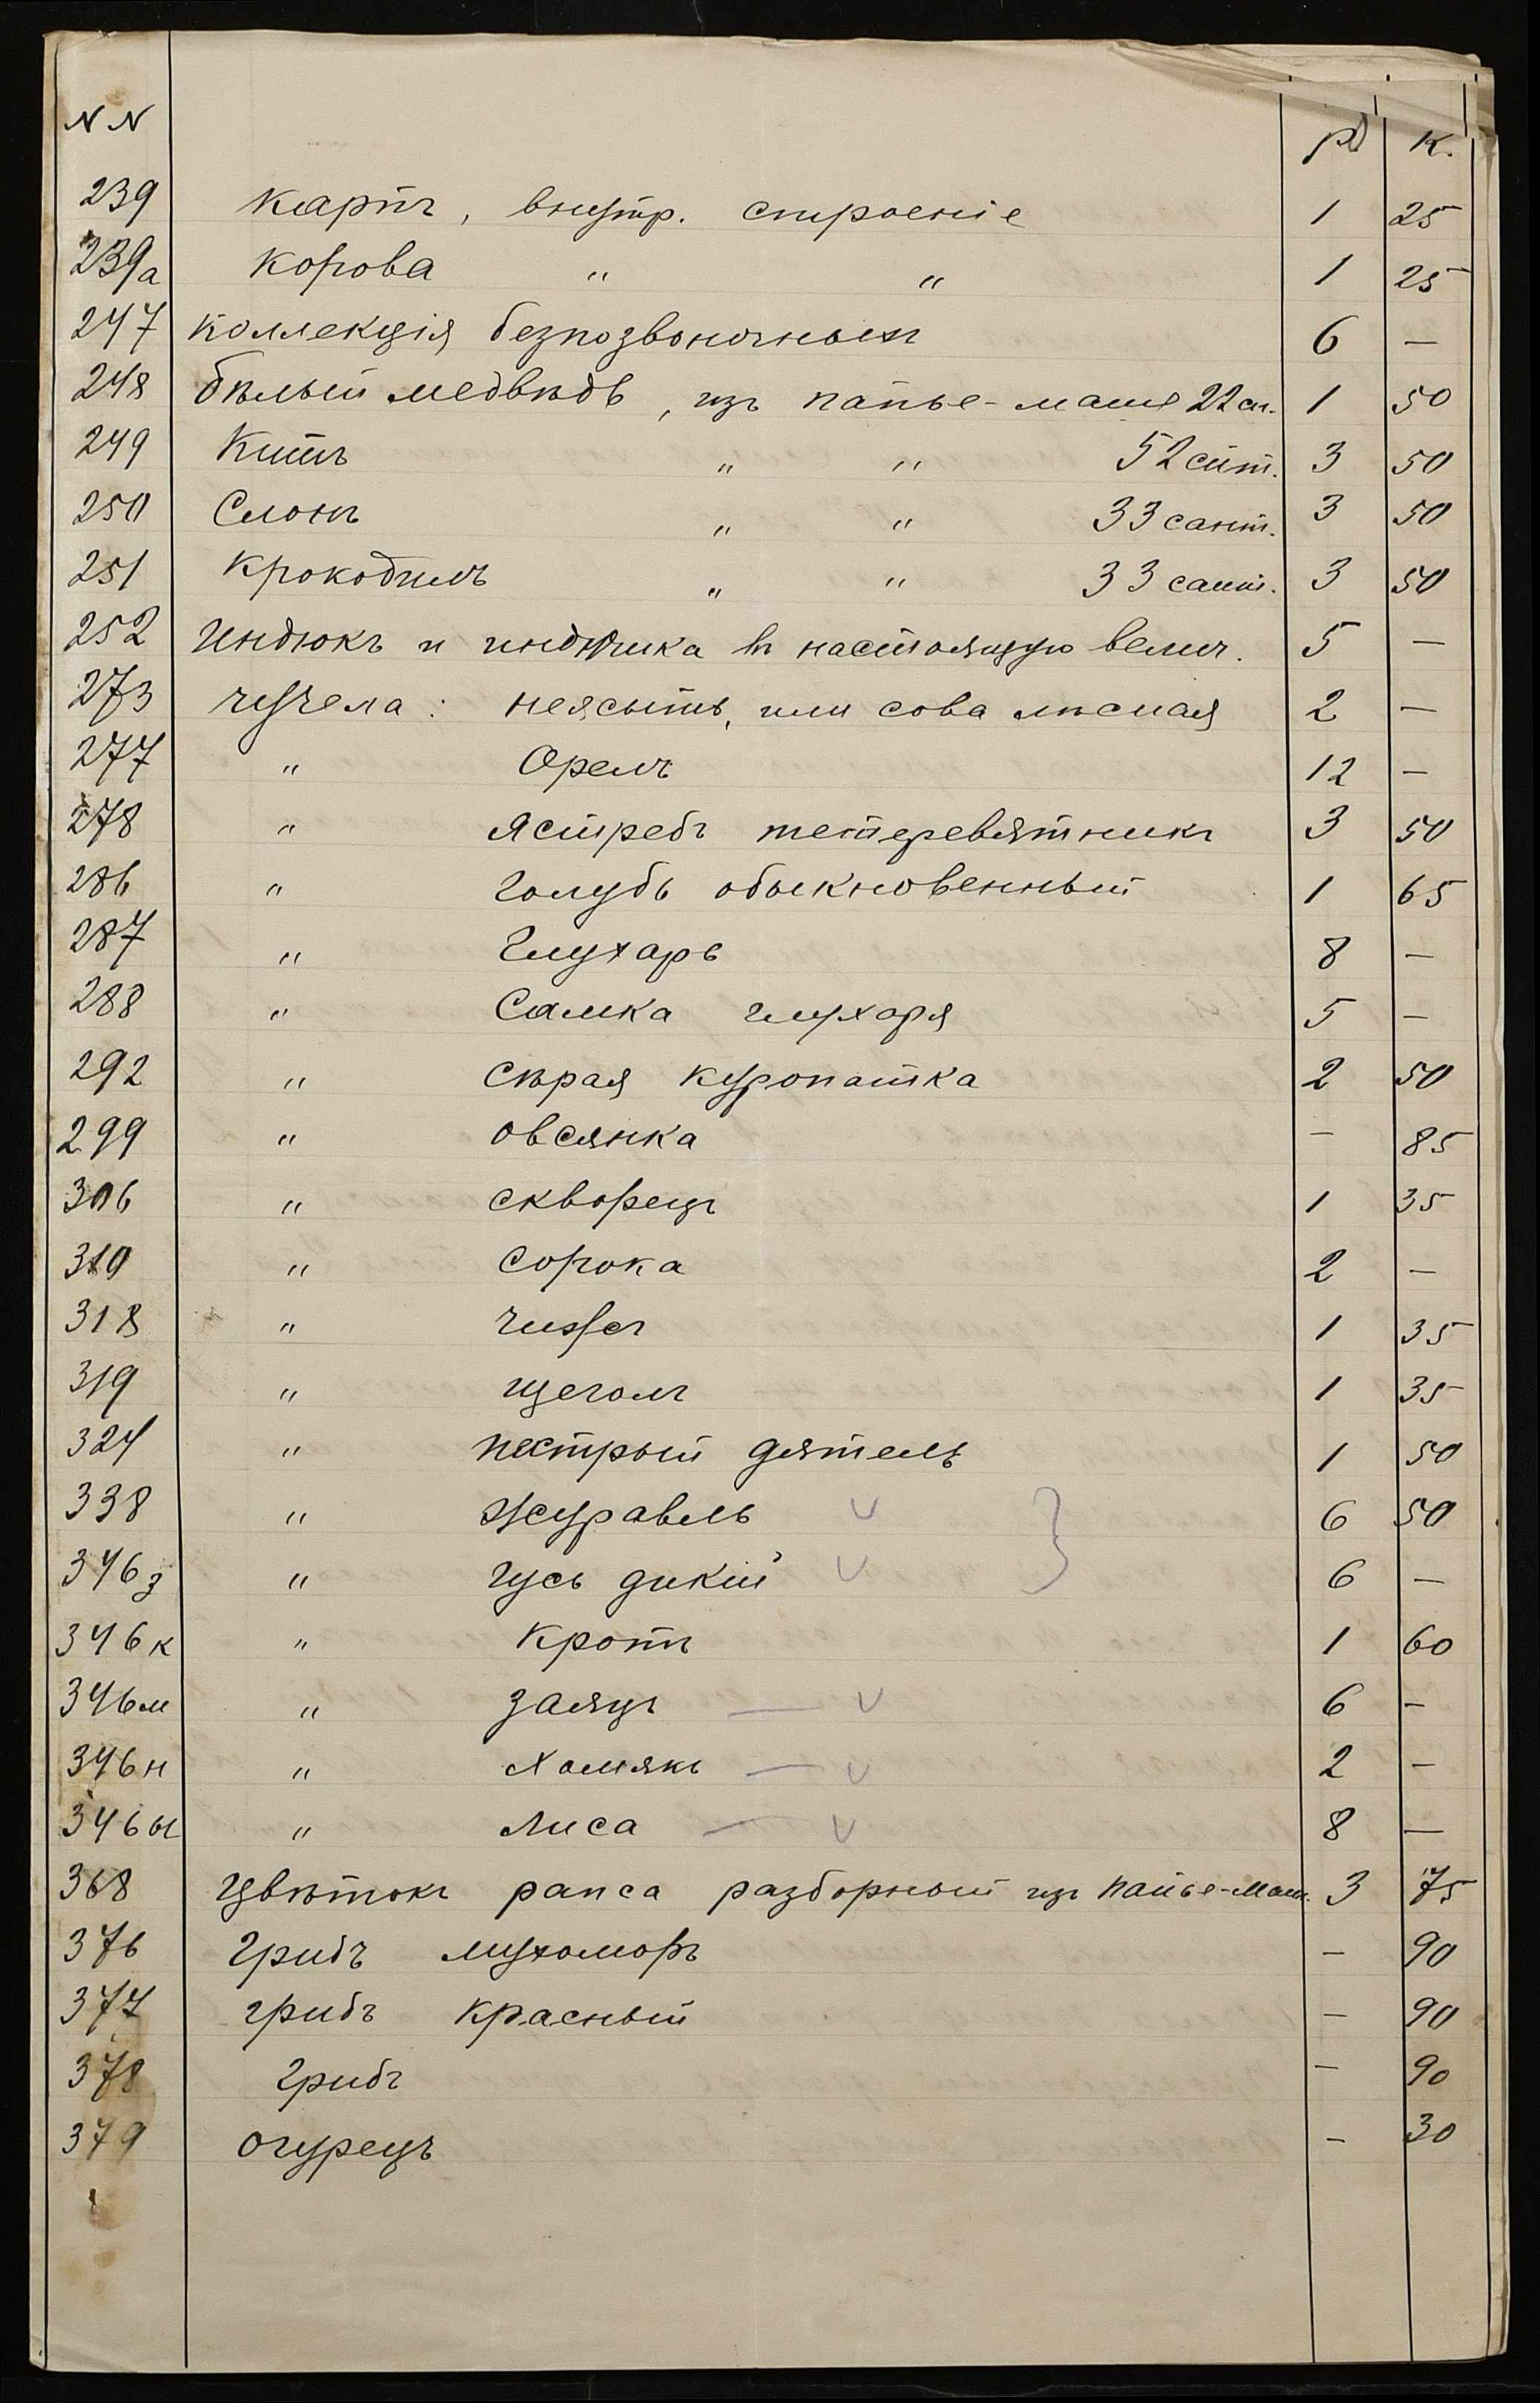 NN р к.
239 карпъ, внутр. строеніе 1 25
239а корова " " 1 25
247 коллекція безпозвоночныхъ 6 —
248 бѣлый медвѣдь, изъ папье-маше 22 см. 1 50
249 Китъ " " 52 снт. 3 50
250 Слонъ " " 33 сант. 3 50
251 крокодилъ " " 33 сант. 3 50
252 Индюкъ и индюшка въ настоящую велич. 5 —
273 чучела: неясыть, или сова лѣсная 2 —
277 " Орелъ 12 —
278 " Ястребъ тетеревятникъ 3 50
286 " Голубь обыкновенный 1 65
287 " Глухарь 8 —
288 " Самка глухаря 5 —
292 " Сѣрая куропатка 2 50
299 " овсянка — 85
306 " скворецъ 1 35
310 " сорока 2 —
318 " чижъ 1 35
319 " щеголъ 1 35
324 " пестрый дятель 1 50
338 " журавль 6 50
346з " гусь дикій 6 —
346к " Кротъ 1 60
346м " заяцъ — 6 —
346н " Хомякъ — 2 —
346ы " Лиса — 8 —
368 Цвѣтокъ рапса разборный изъ папье-маш. 3 75
376 Грибъ мухоморъ — 90
377 грибъ красный — 90
378 Грибъ — 90
379 огурецъ — 30